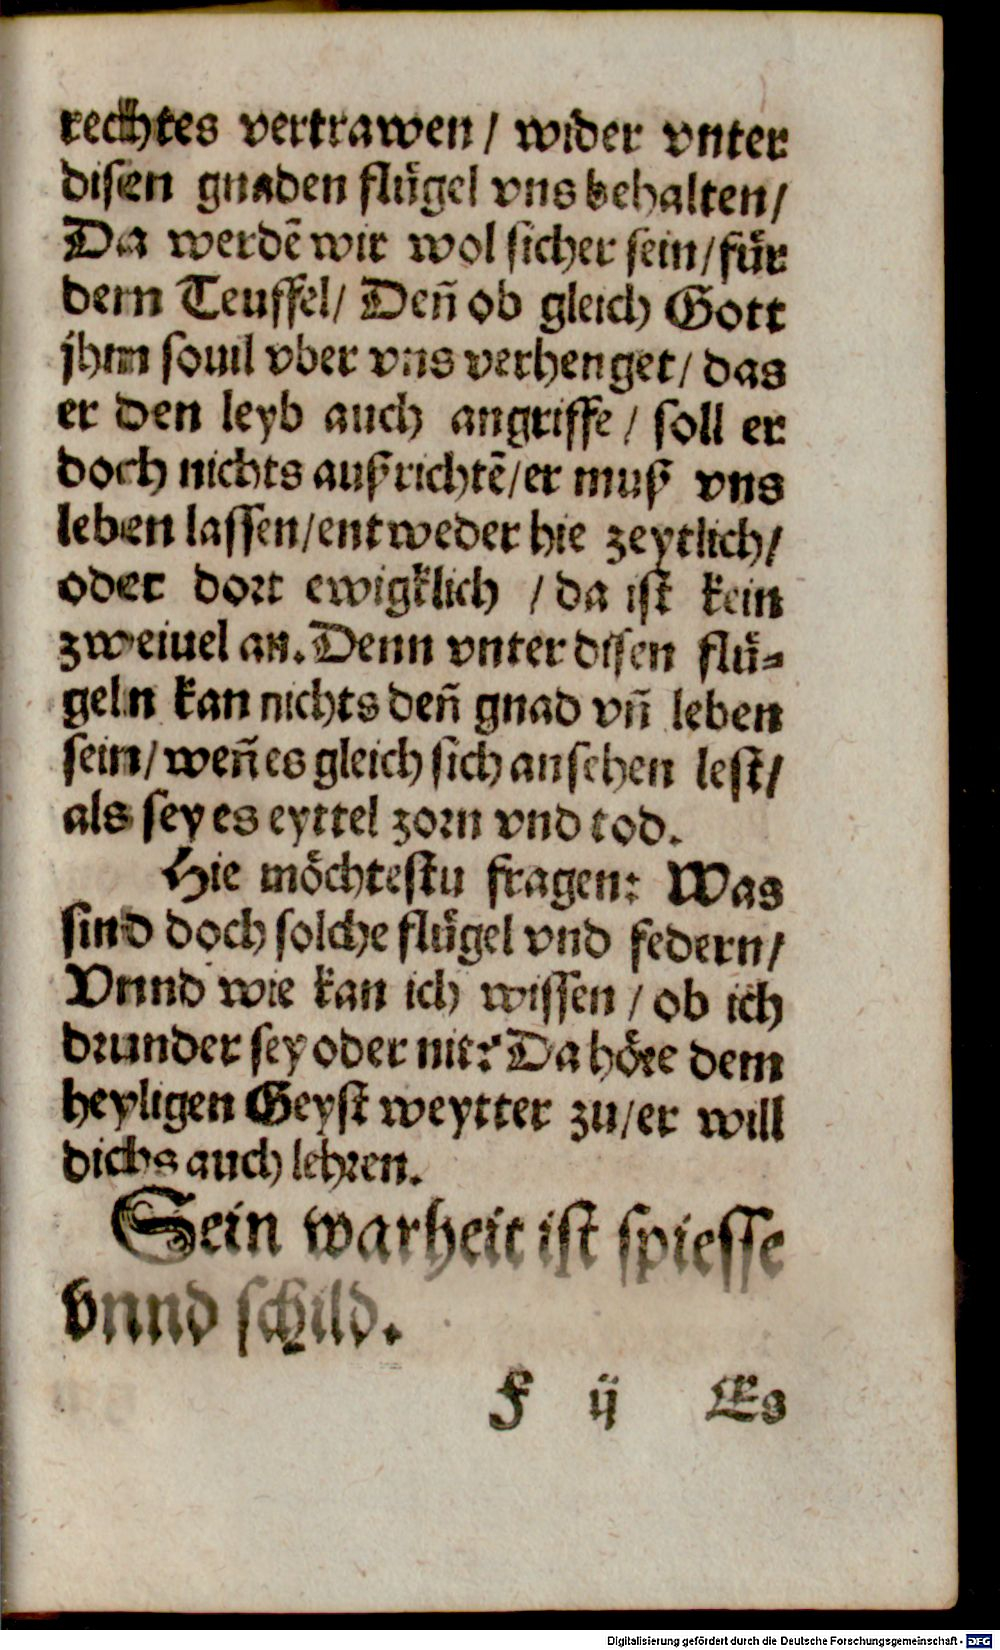 rechtes vertrawen / wider vnter
disen gnaden flügel vns behalten /
Da werdẽ wir wol sicher sein / für
dem Teuffel / Deñ ob gleich Gott
jhm souil vber vns verhenget / das
er den leyb auch angriffe / soll er
doch nichts außrichtẽ / er muß vns
leben lassen / entweder hie zeytlich /
oder dort ewigklich / da ist kein
zweiuel an. Denn vnter disen flü=
geln kan nichts deñ gnad vñ leben
sein / weñ es gleich sich ansehen lest /
als sey es eyttel zorn vnd tod.
Hie möchtestu fragen: Was
sind doch solche flügel vnd federn /
Vnnd wie kan ich wissen / ob ich
drunder sey oder nit? Da höre dem
heyligen Geyst weytter zu / er will
dichs auch lehren.
Sein warheit ist spiesse
vnnd schild.
F ij Es
Digitalisierung gefördert durch die Deutsche Forschungsgemeinschaft - DFG